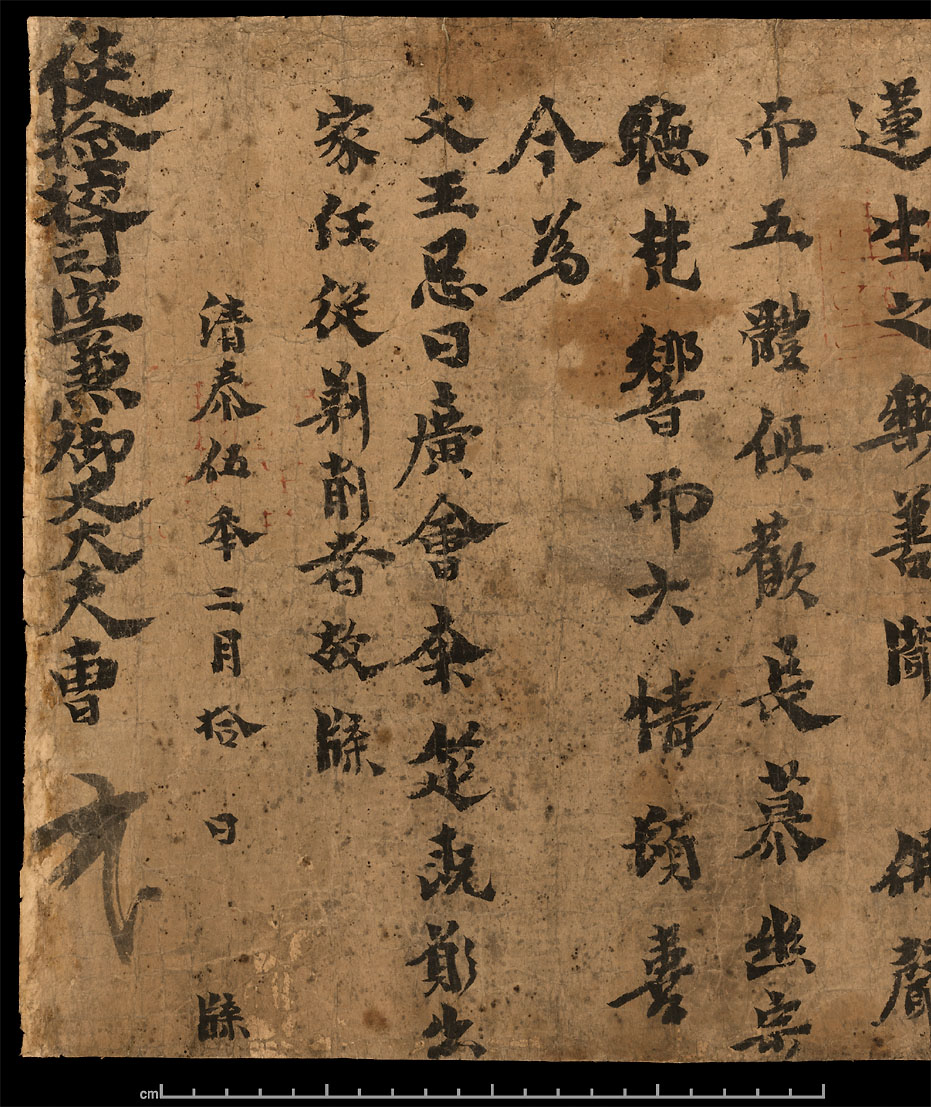 蓮生之樂善聞佛聲
而五體俱歡長慕幽宗
聽梵響而六情頓喜
今為
父王忌日廣會齋筵既願出
家任從剃削者故牒
清泰伍年二月拾日牒
使檢校司空兼御史大夫曹